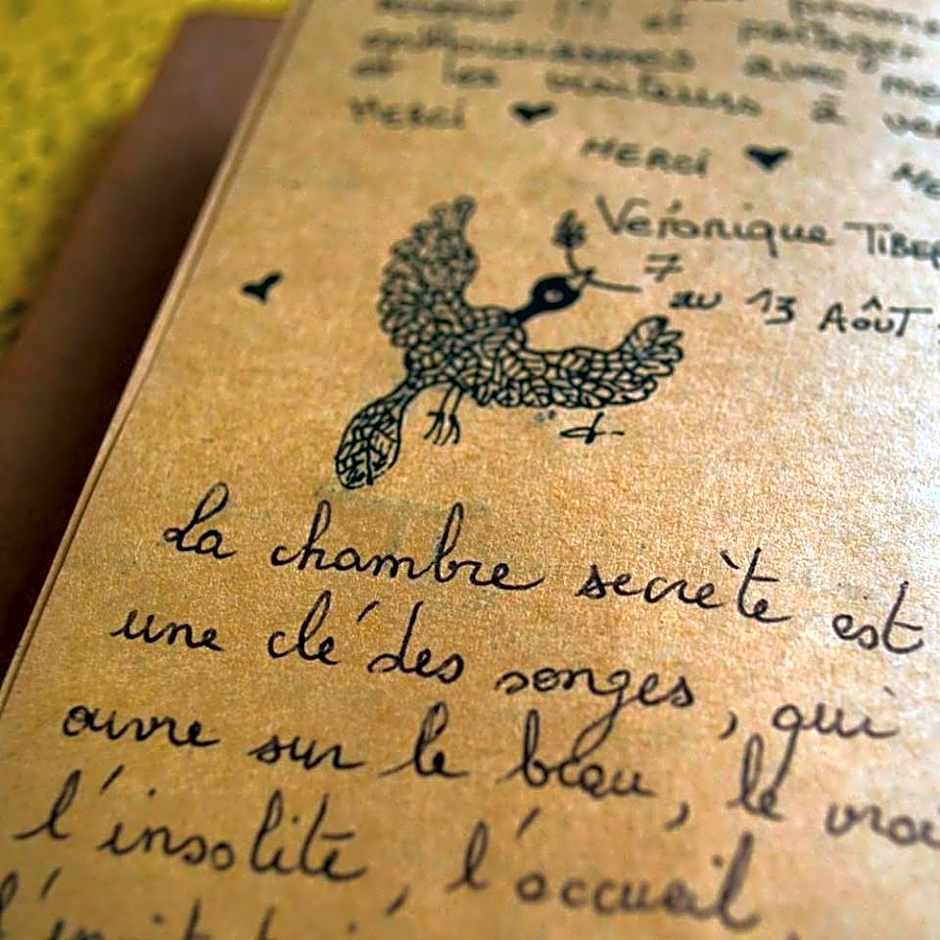 et partager
enthousiasmes avec me
et les visiteurs à ve
MERCI
MERCI ME
Véronique TIBE
7
au 13 AOÛT
La chambre secrète est
une clé des songes, qui
ouvre sur le beau, le vrai
l'insolite, l'accueil